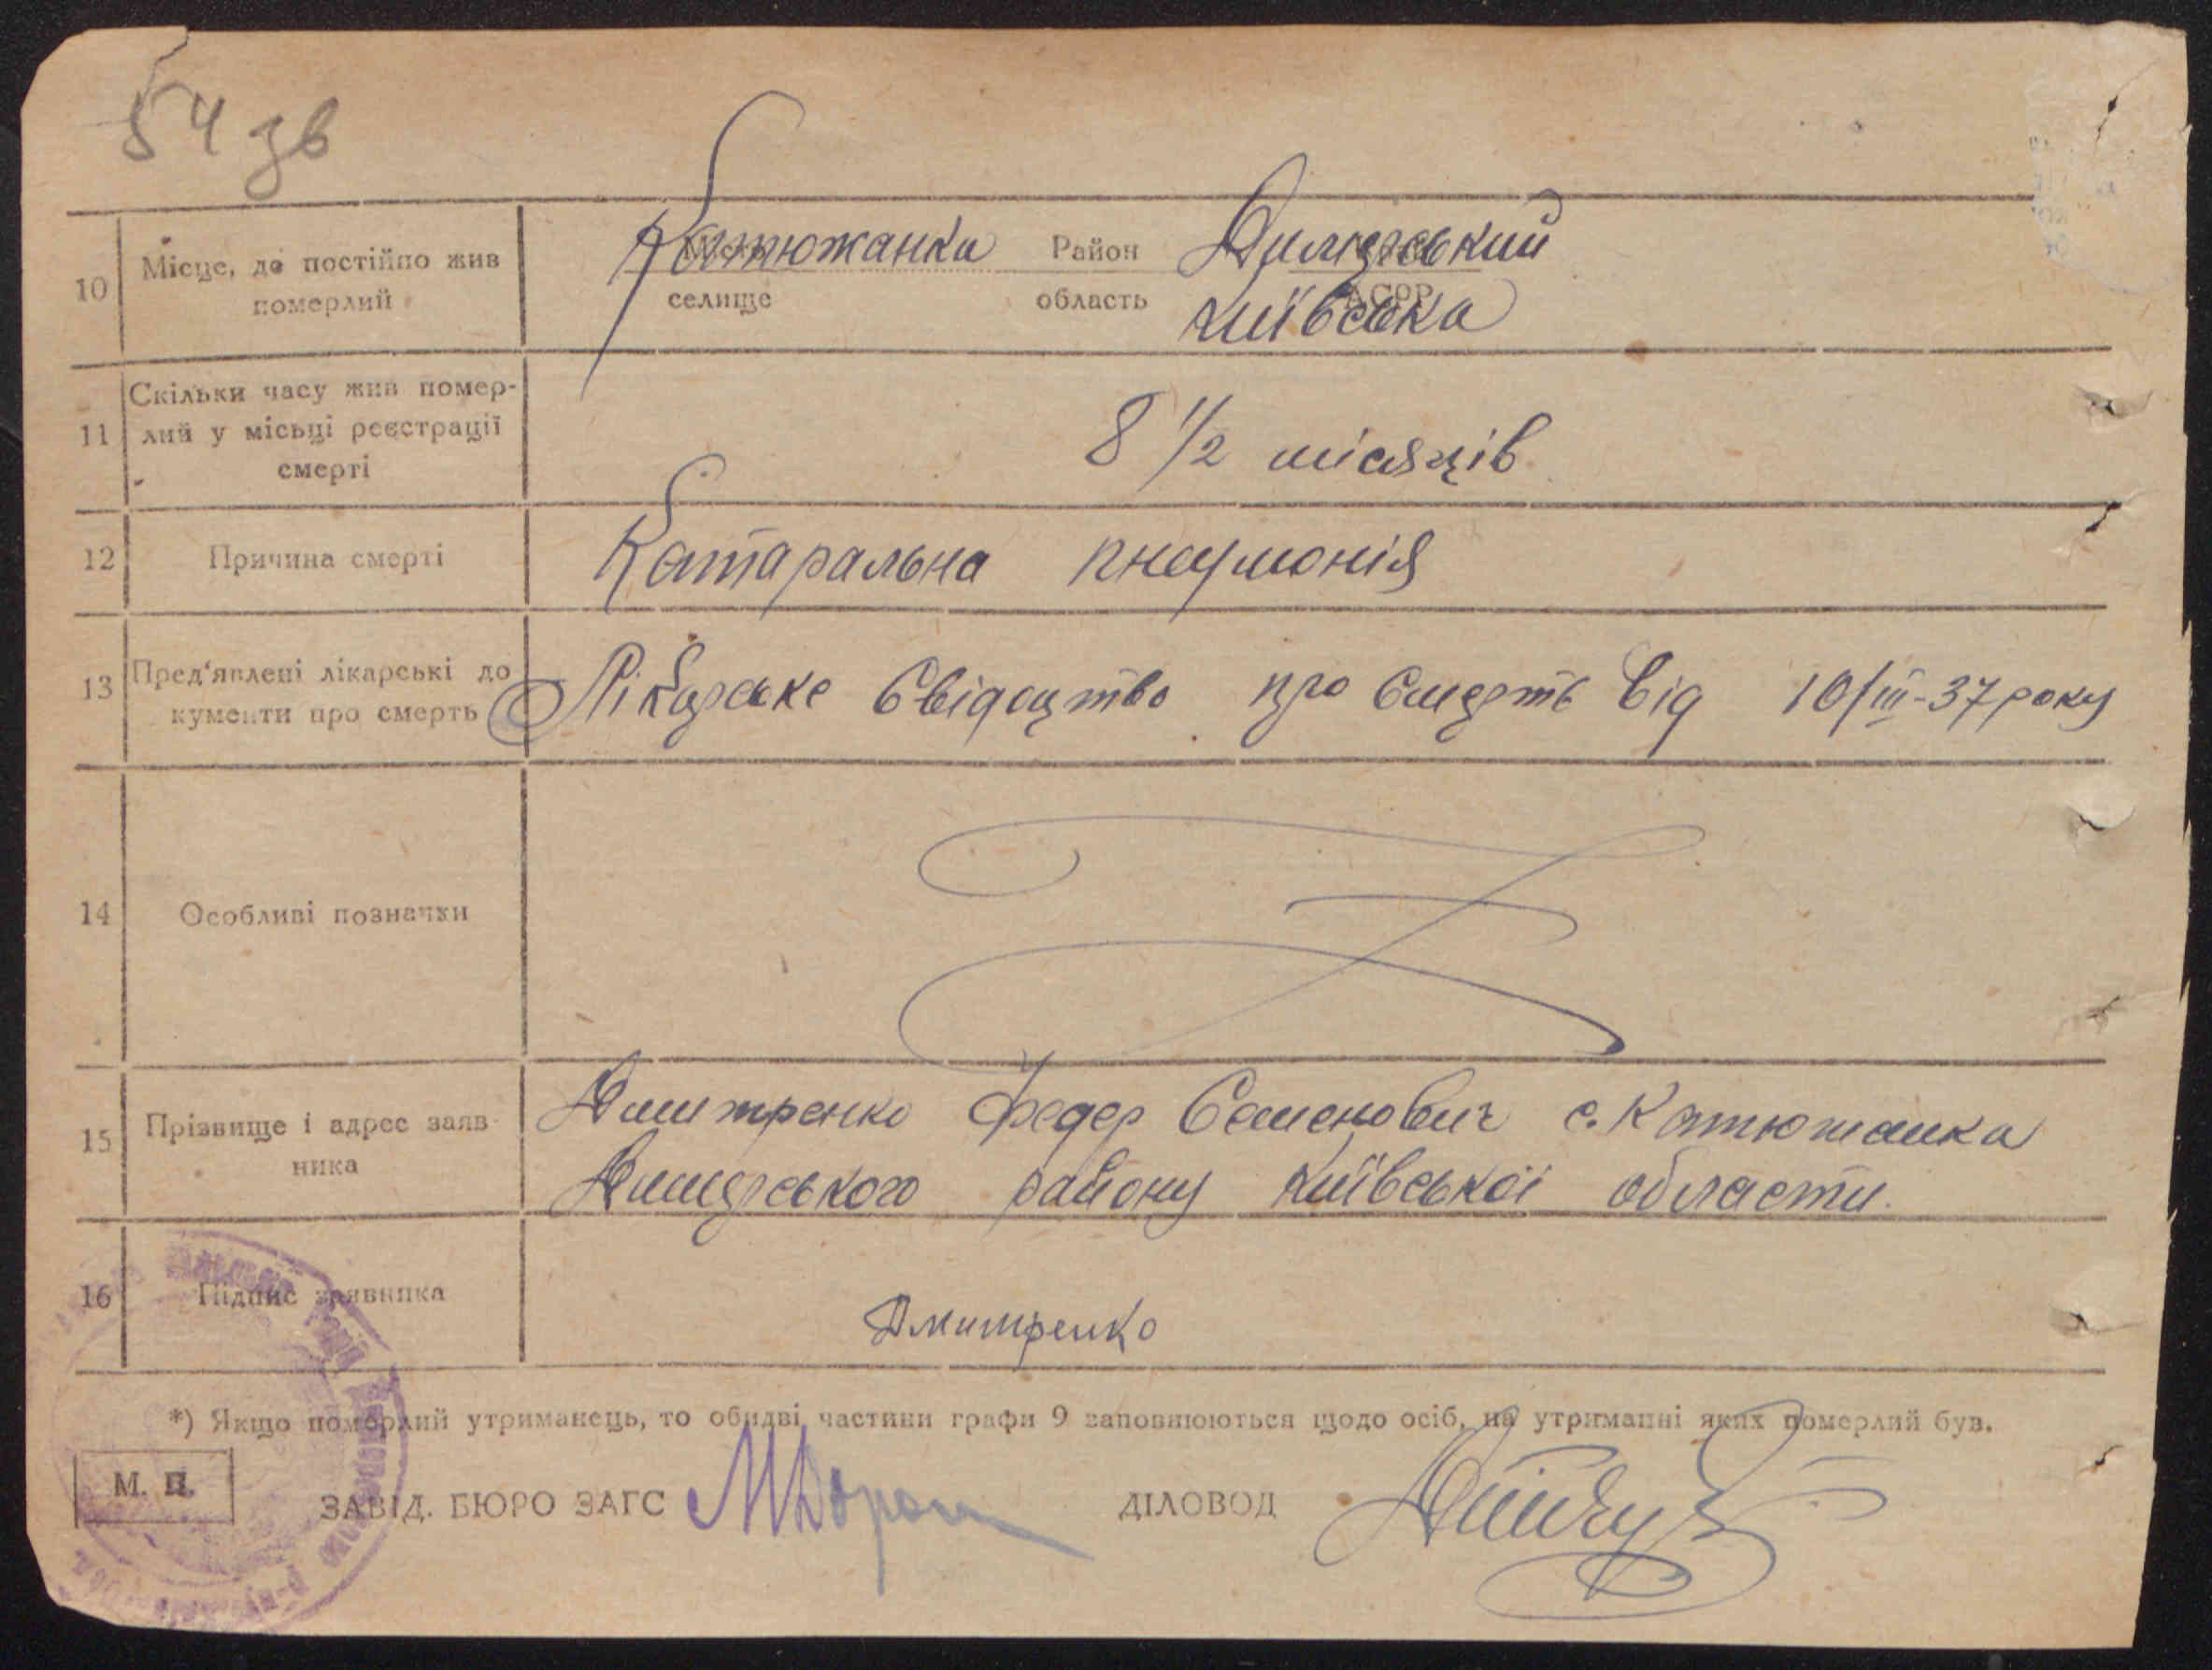 54 зв
10 Місце, де постійно жив Катюжанка Район Димерський
померлий селище область АСРР Київська
11 Скільки часу жив помер-
лий у місьці реєстрації 8 1/2 місяців
смерті
12 Причина смерті Катаральна пнеумонія
13 Пред'явлені лікарські до Лікарске свідоцтво про смерть від 10/III-37 року
кументи про смерть
14 Особливі позначки
15 Прізвище і адрес заяв- Дмитренко Федер Семенович с. Катюжанка
ника Димерського району Київської области.
16 Підпис заявника Дмитренко
*) Якщо померлий утриманець, то обидві частини графи 9 заповнюються щодо осіб, на утриманні яких померлий був.
М. П.
ЗАВІД. БЮРО ЗАГС ДІЛОВОД